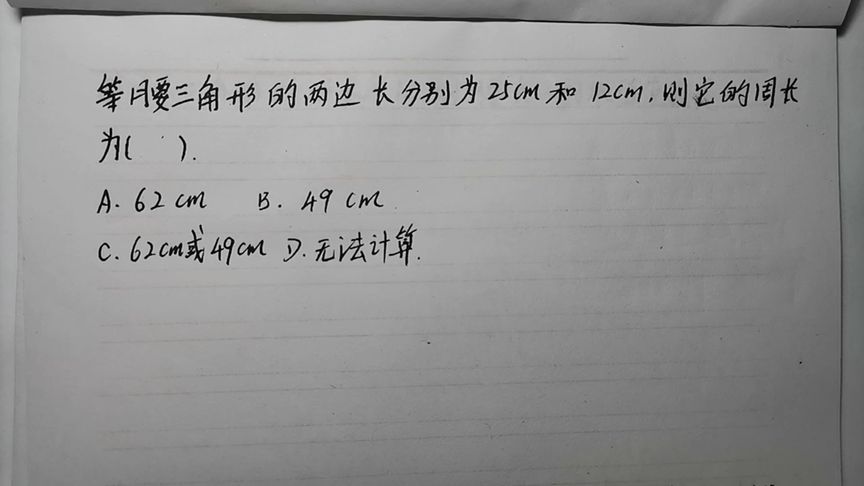 等腰三角形的两边长分别为25cm和12cm,则它的周长
为( ).
A. 62cm B. 49cm
C. 62cm或49cm D. 无法计算.